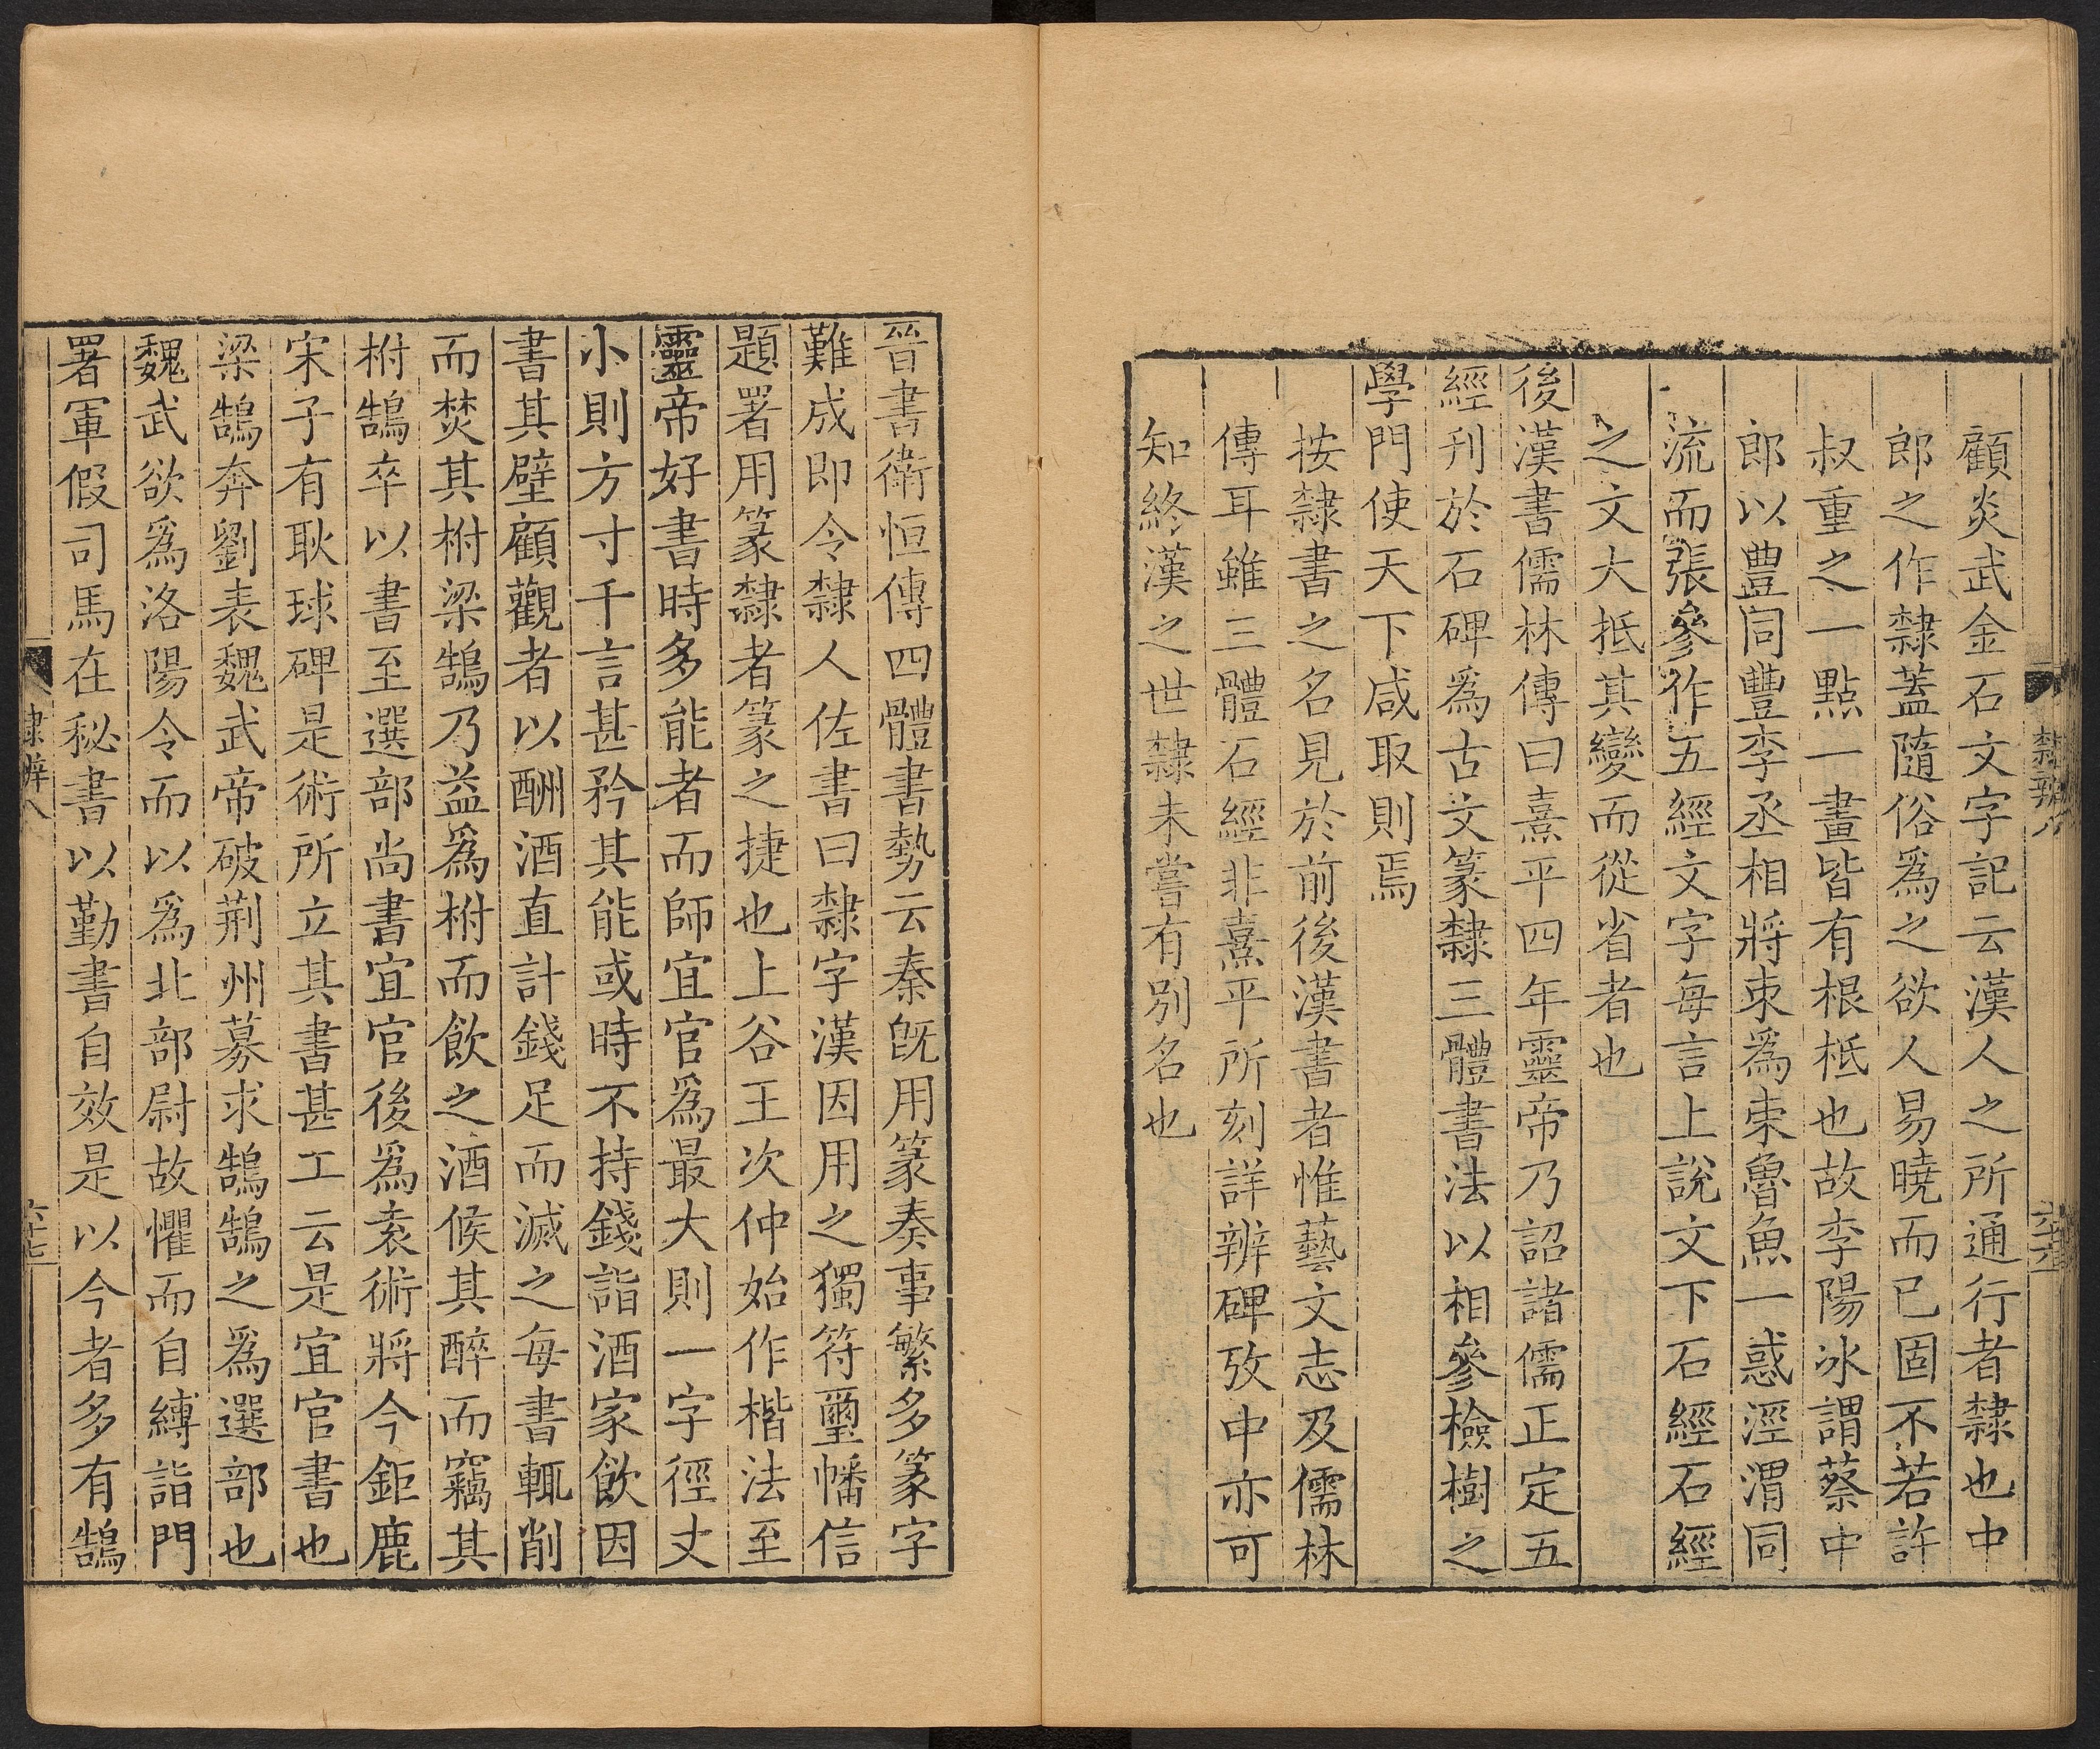 隸辨八
六十六
顧炎武金石文字記云漢人之所通行者隸也中
郎之作隸蓋隨俗爲之欲人易曉而已固不若許
叔重之一點一畫皆有根柢也故李陽冰謂蔡中
郎以豊同豐李丞相將朿爲束魯魚一惑涇渭同
流而張參作五經文字每言上說文下石經石經
之文大抵其變而從省者也
後漢書儒林傳曰熹平四年靈帝乃詔諸儒正定五
經刋於石碑爲古文篆隸三體書法以相參檢樹之
學門使天下咸取則焉
按隸書之名見於前後漢書者惟藝文志及儒林
傳耳雖三體石經非熹平所刻詳辨碑攷中亦可
知終漢之世隸未嘗有別名也
晉書衛恒傳四體書勢云秦旣用篆奏事繁多篆字
難成即令隸人佐書曰隸字漢因用之獨符璽幡信
題署用篆隸者篆之捷也上谷王次仲始作楷法至
靈帝好書時多能者而師宜官爲最大則一字徑丈
小則方寸千言甚矜其能或時不持錢詣酒家飲因
書其壁顧觀者以酬酒直計錢足而滅之每書輒削
而焚其柎梁鵠乃益爲柎而飲之酒候其醉而竊其
柎鵠卒以書至選部尚書宜官後爲袁術將今鉅鹿
宋子有耿球碑是術所立其書甚工云是宜官書也
梁鵠奔劉表魏武帝破荆州募求鵠鵠之爲選部也
魏武欲爲洛陽令而以爲北部尉故懼而自縛詣門
署軍假司馬在秘書以勤書自效是以今者多有鵠
隸辨八
六十七